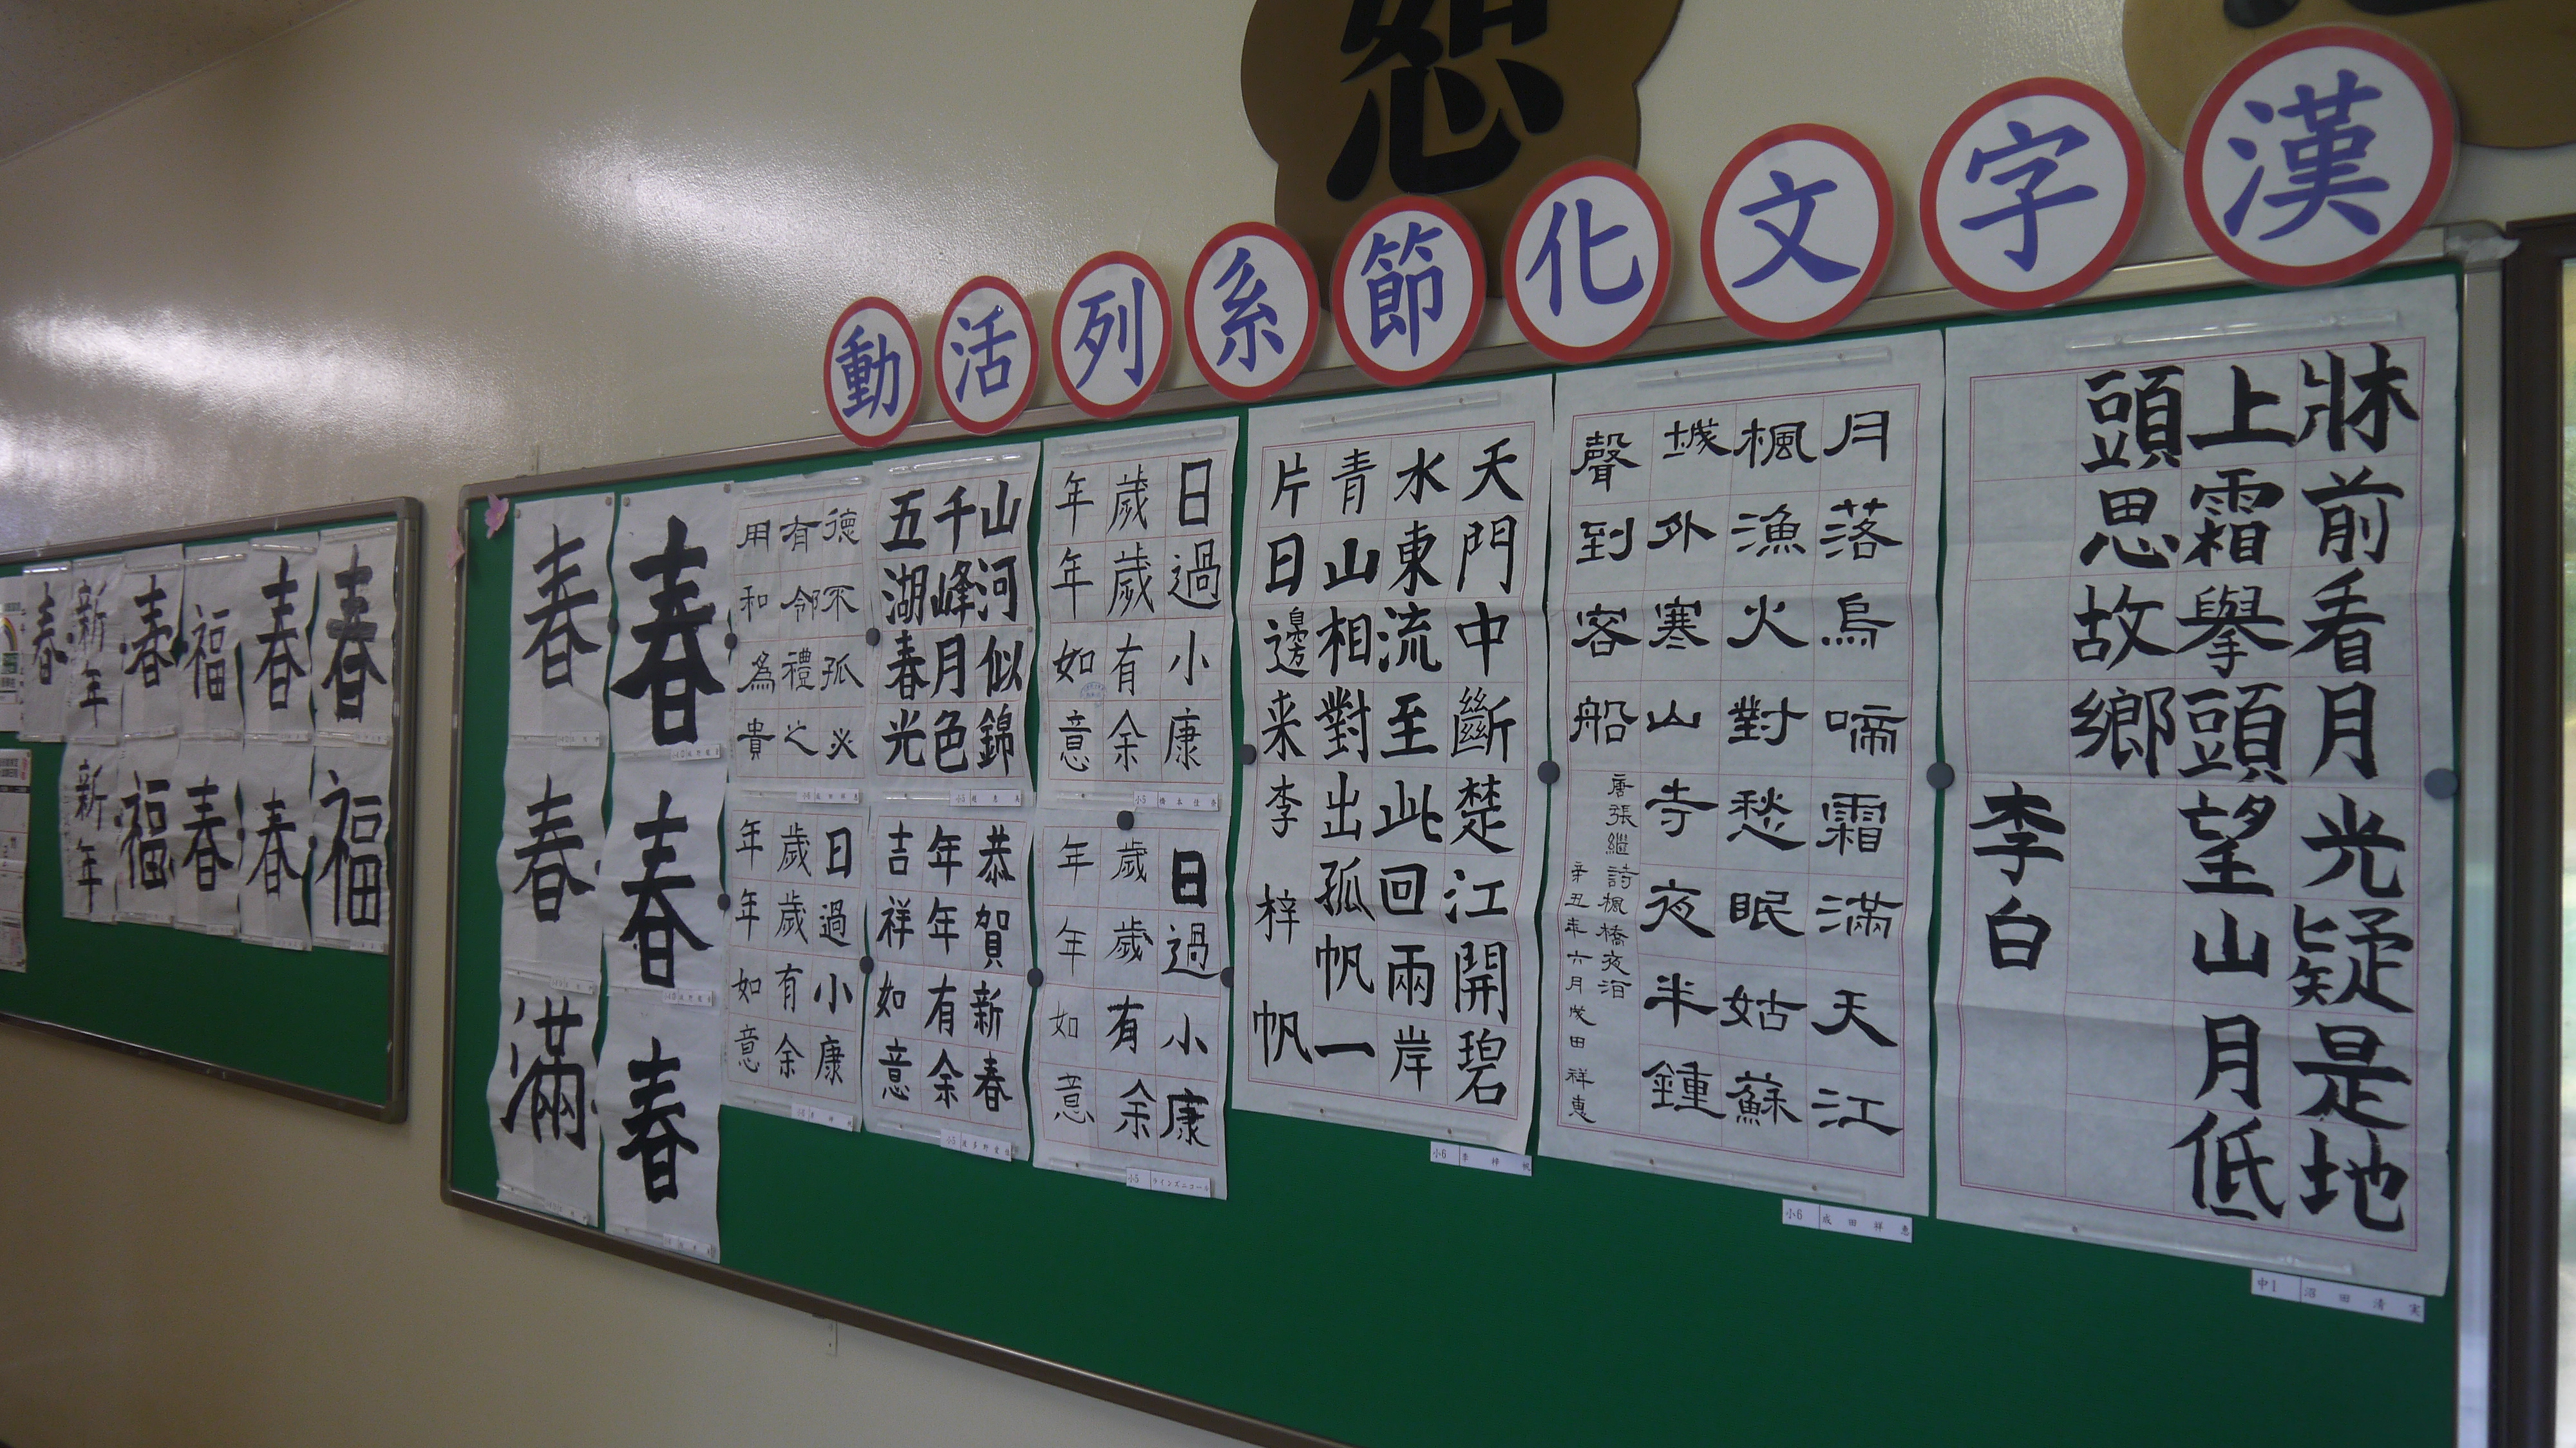 恕
漢字文化節系列活動
牀前看月光疑是地
上霜舉頭望山月低
頭思故鄉
李白
中1 沼田清実
月落烏啼霜滿天江
楓漁火對愁眠姑蘇
城外寒山寺夜半鍾
聲到客船
唐張繼詩楓橋夜泊
辛丑年六月成田祥惠
小6 成田祥惠
天門中斷楚江開碧
水東流至此回兩岸
青山相對出孤帆一
片日邊来李梓帆
小6 李梓帆
日過小康
歲歲有余
年年如意
小5 橋本佳奈
日過小康
歲歲有余
年年如意
小5 ラインズニコール
山河似錦
千峰月色
五湖春光
小5
恭賀新春
年年有余
吉祥如意
小5 波多野
德不孤必
有邻禮之
用和為貴
小6 成田祥惠
日過小康
歲歲有余
年年如意
小6 李梓帆
春
春
春
春
春
滿
春
福
春
春
福
春
春
福
新年
新年
春